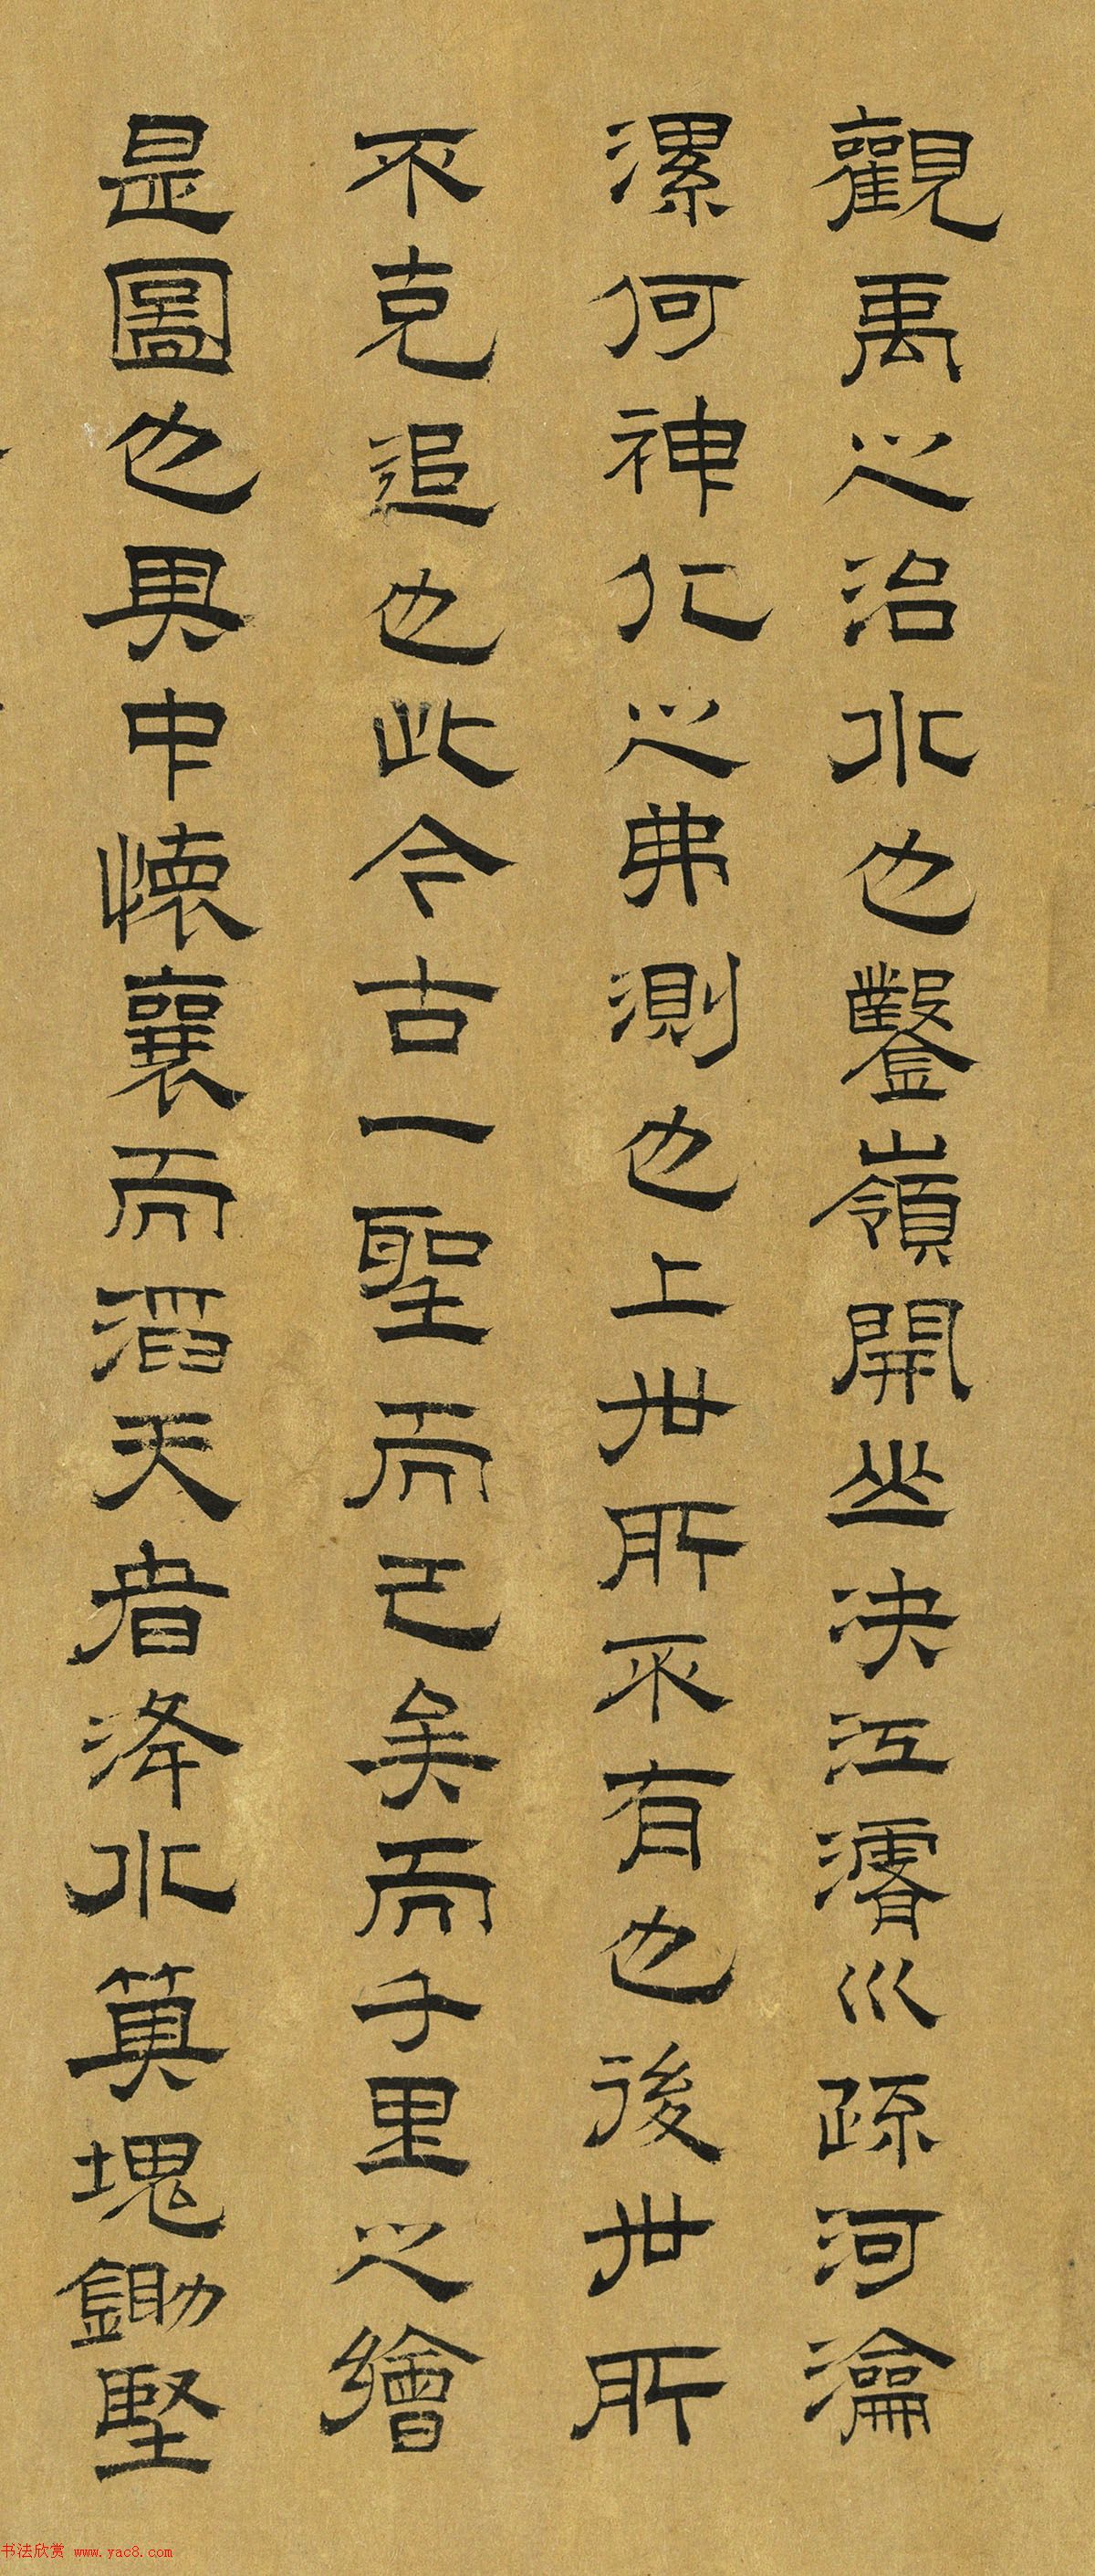 觀禹之治水也鑿嶺開山決江濬川疏河瀹
漯何神化之弗測也上世所不有也後世所
不克追也此今古一聖而已矣而千里之繪
是圖也其中懷襄而滔天者洚水其塊鋤堅
书法欣赏 www.yac8.com